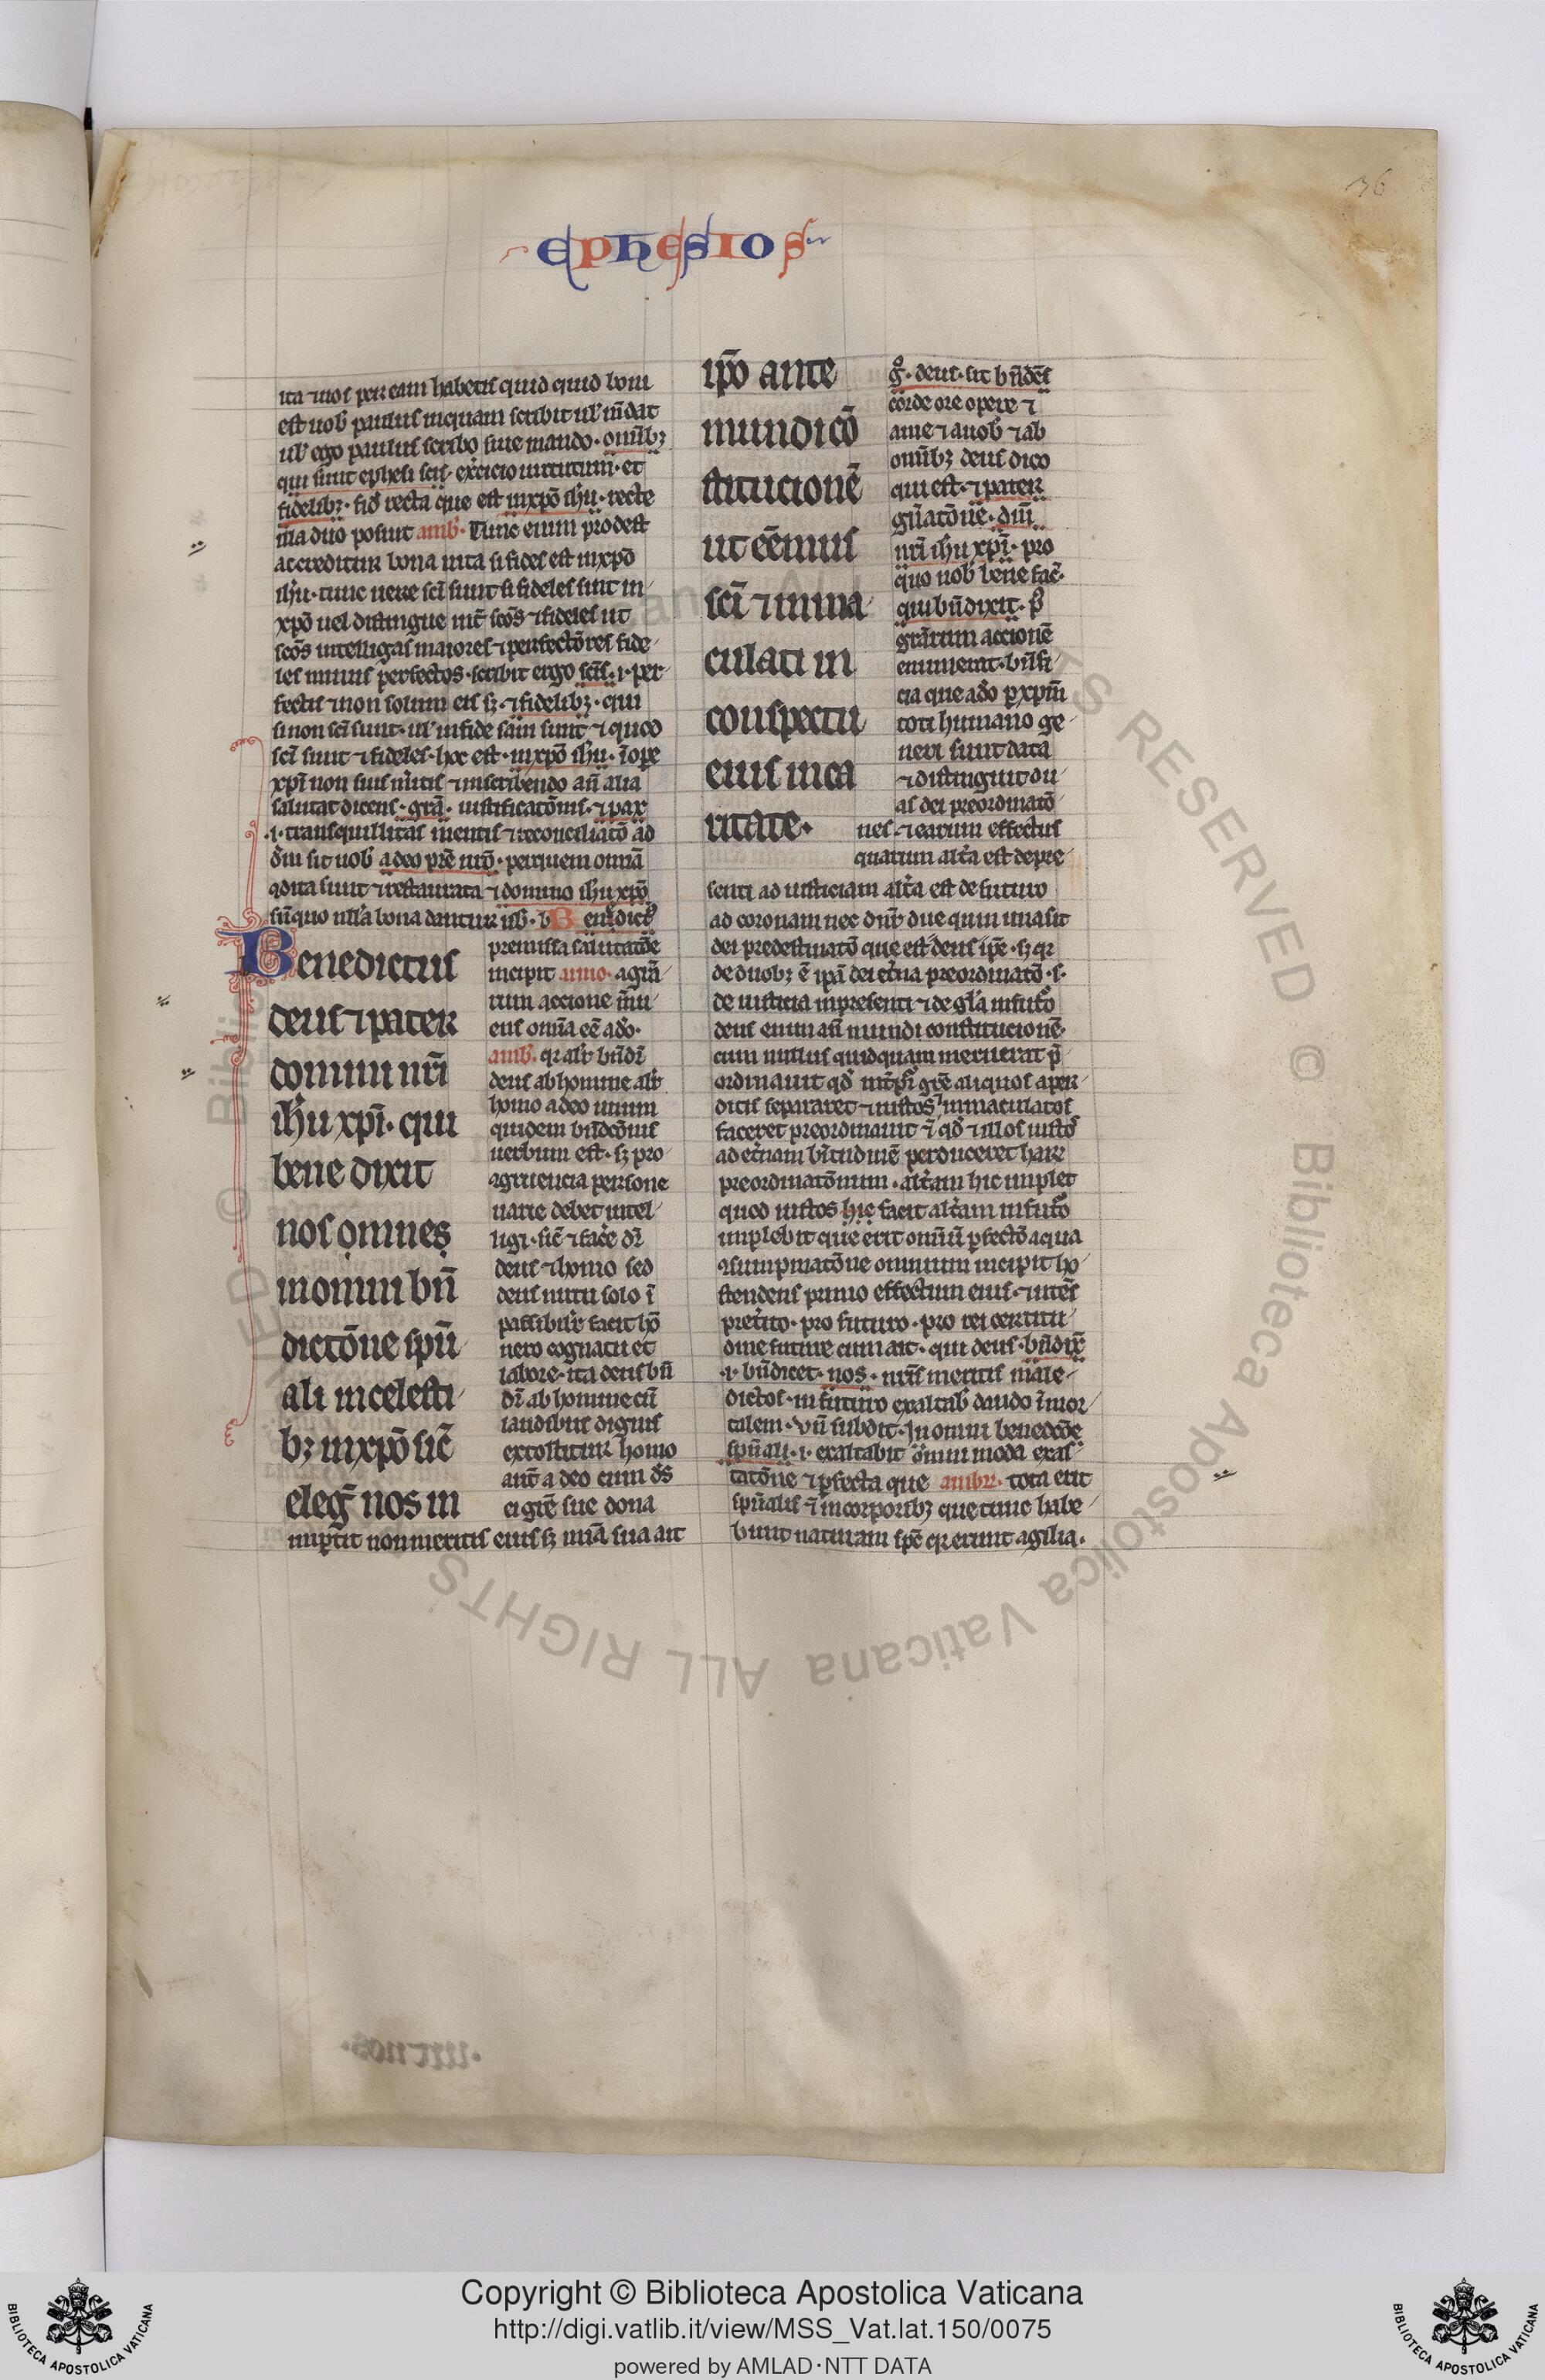 36
ephesios
ita ⁊ uos per eam habetis quid quid boni
est uob̄ paulus inquam scribit ul̓ m̄dat
ul̓ ego paulus scribo siue mando · om̄ibꝫ
qui sunt ephesi sc̄is · ex̄cicio uirtutum · et
fidelibꝫ · fid̄ recta que est in xp̄o ih̄u · recte
duo posuit amb̓ · Tunc enim prodest
ac creditur bona uita si fides est in xp̄o
ih̄u · tunc uere sc̄i sunt si fideles sint in
xp̄o uel distingue int̄ sc̄os ⁊ fideles ut
sc̄os intelligas maiores ⁊ perfectōres fide
les minus perfectos · scribit ergo sc̄is · i · per
fectis ⁊ non solum eis sꝫ · ⁊ fidelibꝫ · qui
si non sc̄i sunt · ul̓ in fide sunt ⁊ quod
sc̄i sunt ⁊ fideles · hoc est · in xp̄o ih̄u · ī ope
xp̄i non suis m̄itis ⁊ in scribendo an̄ alia
salutat dicens · gr̄a · iustificatōnis · ⁊ pax
· i · transquillitas mentis ⁊ reconciliatō ad
dm̄ sit uob̄ a deo pr̄e nr̄o · per quem om̄ia
ꝯdita sunt ⁊ restaurata ⁊ domino ih̄u xp̄o
sn̄ quo nll̓a bona dantur
Benedictus
deus ⁊ pater
domini nr̄i
ih̄u xp̄i · qui
bene dixit
nos omnes
in omni bn̄
dictōne spū
ali in celesti
bꝫ in xp̄o sic̄
eleḡ nos in
premissa salutatōe
incipit amo · a gr̄a
rum accione
ens om̄ia eē a dō ·
amb̓ · qr̄ alr̄ bn̄dr̄
deus ab homine alr̄
homo a deo unum
quidem bn̄dcōnis
uerbum est · sꝫ pro
ꝯgruencia persone
uarie debet intel
ligi · sic̄ ⁊ fac̄e dr̄
deus ⁊ homo sed
deus nutu solo ī
passibilr̄ facit hō
uero cognatu et
labore · ita deus bn̄
dr̄ ab homine cū
laudibus dignis
extollitur homo
aut̄ a deo cum ds̄
ei gr̄e sue dona
inp̄tit non meritis eius sꝫ mīa sua ait
ip̄o ante
mundi cō
stitucionē
ut eēmus
sc̄i ⁊ inma
culati in
conspectu
eius in ca
ritate ·
g̊ · deus · sit bn̄dc̄s
corde ore opere ⁊
a me ⁊ a uob̄ ⁊ ab
om̄ibꝫ deus dico
qui est · ⁊ pater
gn̄atōne · dn̄i
nr̄i ih̄u xp̄i · pro
quo nob̄ bene fac̄ ·
qui bn̄dixit · p̄
gr̄arum accionē
enumerat · bn̄fi
cia que a dō p xp̄m
toti humano ge
neri sunt data
⁊ distinguit du
as dei preordinatō
nes · ⁊ earum effectus
quarum alt̄a est de pre
senti ad iusticiam alt̄a est de futuro
ad coronam nec dn̄r due quin una sit
dei predestinatō que est deus ip̄e · sꝫ qr̄
de duobꝫ ē ip̄a dei et̄na preordinatō · s ·
de iusticia in presenti ⁊ de gl̄a in fut̄o
deus enim an̄ mundi constitucionē ·
cum nullus quidquam meruerat p̄
ordinauit qd̄ aliquos a per
ditis separaret ⁊ iustos ⁊ inmaculatos
faceret preordinauit ⁊ qd̄ ⁊ illos iustos
ad et̄nam bt̄itudinē perduceret hare
preordinatōnum · alt̄am hic implet
quod iustos hic facit alt̄am in fut̄o
implebit que erit om̄iū pfectō a qua
ꝯsumpmatōne omnium incipit ho
stendens primo effectum eius · ⁊ utēs
pret̄ito · pro futuro · pro rei certitu
dine future cum ait · qui deus · bn̄dix̄
· i · bn̄dicet · nos · nr̄is meritis male
dictos · in futuro exaltab̄ dando īmor
talem · un̄ subdit · In omni benedcōe
spn̄ali · i · exaltabit omni moda exal
tatōne ⁊ pfecta que ambr̄ · tota erit
spn̄alis ⁊ in corporibꝫ que tunc habe
bunt naturam spc̄ qr̄ erunt agilia ·
© Biblioteca Apostolica Vaticana ALL RIGHTS RESERVED
Copyright © Biblioteca Apostolica Vaticana
http://digi.vatlib.it/view/MSS_Vat.lat.150/0075
powered by AMLAD·NTT DATA
BIBLIOTECA APOSTOLICA VATICANA
BIBLIOTECA APOSTOLICA VATICANA